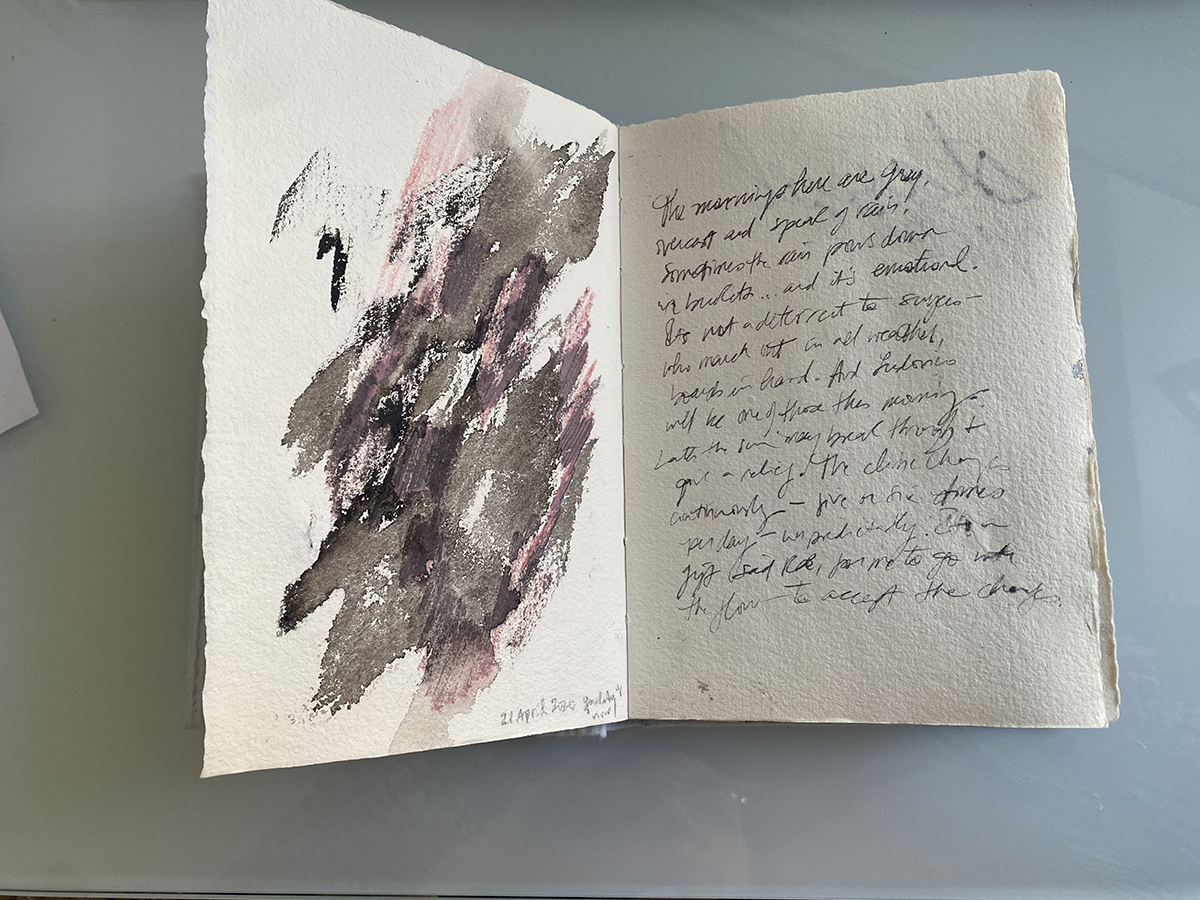 21 April 2020
The mornings here are grey,
overcast and speak of rain.
Sometimes the rain pours down
in buckets... and it's emotional.
It's not a deterrent to surfers –
who march out in all weather,
boards in hand. And Ludovico
will be one of those this morning.
Later the sun may break through +
give a relief. The clime changes
continuously – five or six times
per day – unpredictably. It's a
gift said Rob, for me to go with
the flow – to accept the change.